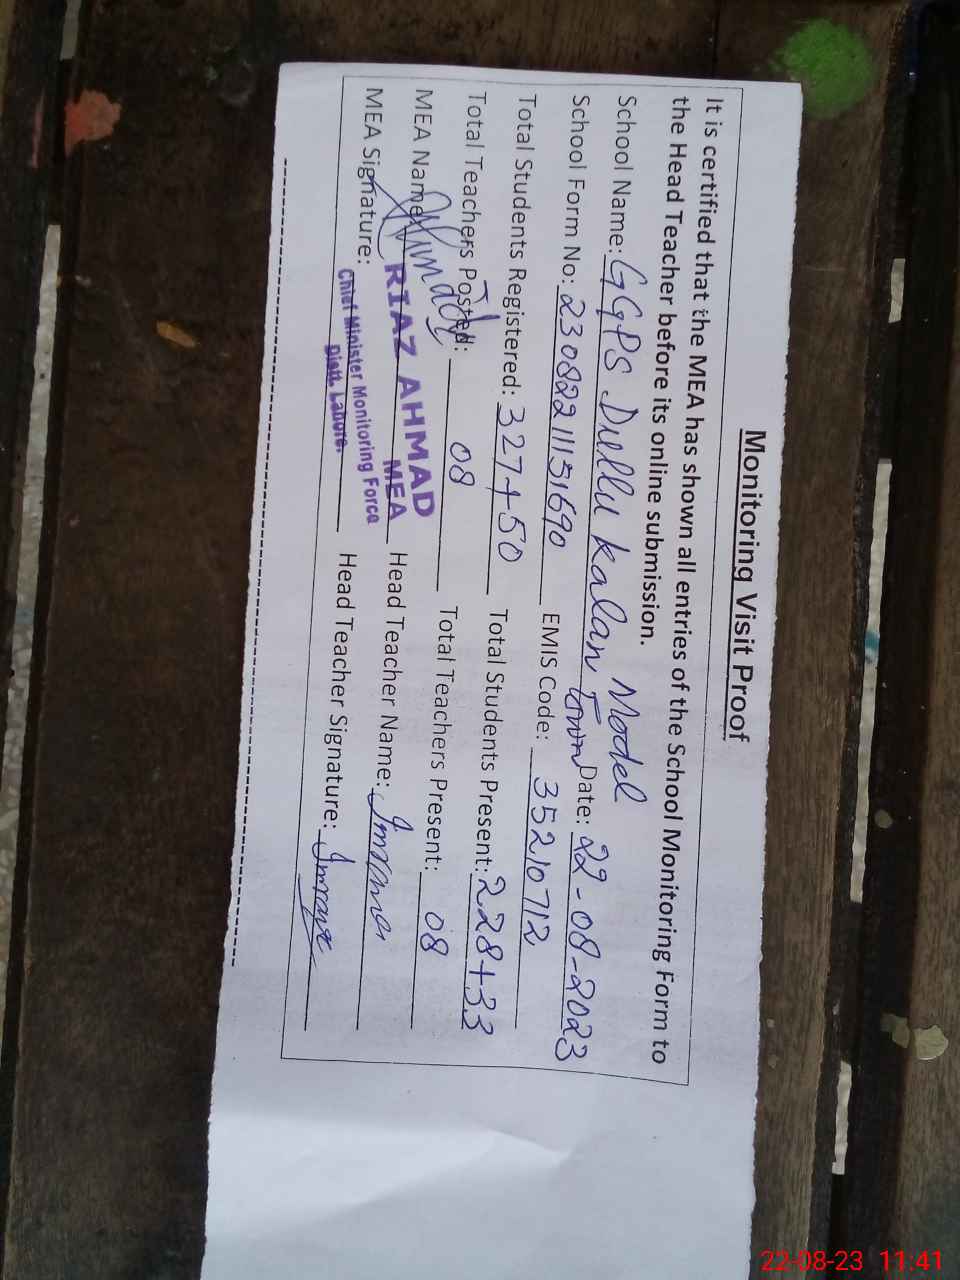 Monitoring Visit Proof
It is certified that the MEA has shown all entries of the School Monitoring Form to
the Head Teacher before its online submission.
School Name: GGPS Dullu Kalan Model Town Date: 22-08-2023
School Form No: 23082211151690 EMIS Code: 35210712
Total Students Registered: 327+50 Total Students Present: 228+33
Total Teachers Posted: 08 Total Teachers Present: 08
MEA Name: RIAZ AHMAD Head Teacher Name:
MEA
MEA Signature: Head Teacher Signature:
Chief Minister Monitoring Force
Distt. Lahore.
22-08-23 11:41